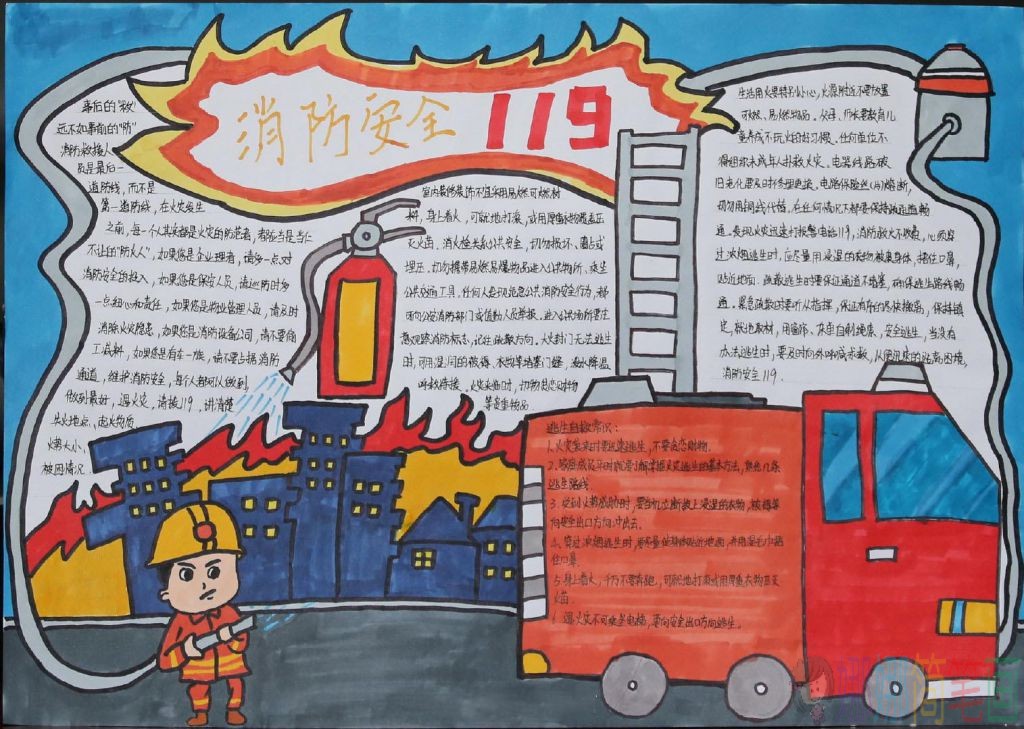 消防安全 119
事后的“救”
远不如事前的“防”
消防救援人
员是最后一
道防线，而不是
第一道防线，在火灾发生
之前，每一个人其实都是火灾的防范者，都应当是当仁
不让的“防火人”，如果您是企业理者，请多一点对
消防安全的投入，如果您是保安人员，请巡防时多
一点细心和责任，如果您是物业管理人员，请及时
消除火灾隐患，如果您是消防设备公司，请不要偷
工减料，如果您是有车一族，请不要占据消防
通道，维护消防安全，每个人都可以做到，
做到最好，遇火灾，请拨119，讲清楚
失火地点、起火物质、
火势大小、
被困情况。
室内装修装饰不宜采用易燃可燃材
料，身上着火，可就地打滚，或用厚重衣物覆盖压
灭火苗，消火栓关系公共安全，切勿损坏、圈占或
埋压，切勿携带易燃易爆物品进入公共场所、乘坐
公共交通工具，任何人发现危害公共消防安全行为，都
可向公安消防部门或值勤人员举报。进入公共场所要注
意观察消防标志，记住疏散方向，火封门无法逃生
时，可用浸湿的被褥、衣物等堵塞门缝，泼水降温
呼救待援，火灾来临时，切勿贪恋财物
等贵重物品。
生活用火要特别小心，火源附近不要放置
可燃、易燃物品，父母、师长要教育儿
童养成不玩火的好习惯、任何单位不
得组织未成年人扑救火灾、电器线路破
旧老化要及时修理更换、电路保险丝(片)熔断，
切勿用铜线代替，在任何情况下都要保持疏散通道畅
通。发现火灾迅速打报警电话119，消防救火不收费，必须穿
过浓烟逃生时，应尽量用浸湿的衣物被裹身体，捂住口鼻，
贴近地面。疏散逃生时要保证通道不堵塞，确保逃生路线畅
通。紧急疏散时要听从指挥，保证有序的尽快撤离，保持镇
定，就地取材，用窗帘、床单自制绳索，安全逃生，当没有
办法逃生时，要及时向外呼喊求救，从便迅速的逃离困境，
消防安全119.
逃生自救常识：
1、火灾袭来时要迅速逃生，不要贪恋财物。
2、家庭成员平时就要了解掌握火灾逃生的基本方法，熟悉几条
逃生路线。
3、受到火势威胁时，要当机立断披上浸湿的衣物，被褥等
向安全出口方向冲出去。
4、穿过浓烟逃生时，要尽量使身体贴近地面，并用湿毛巾捂
住口鼻。
5、身上着火，千万不要奔跑，可就地打滚或用厚重衣物压灭
火苗。
6、遇火灾不可乘坐电梯，要向安全出口方向逃生。